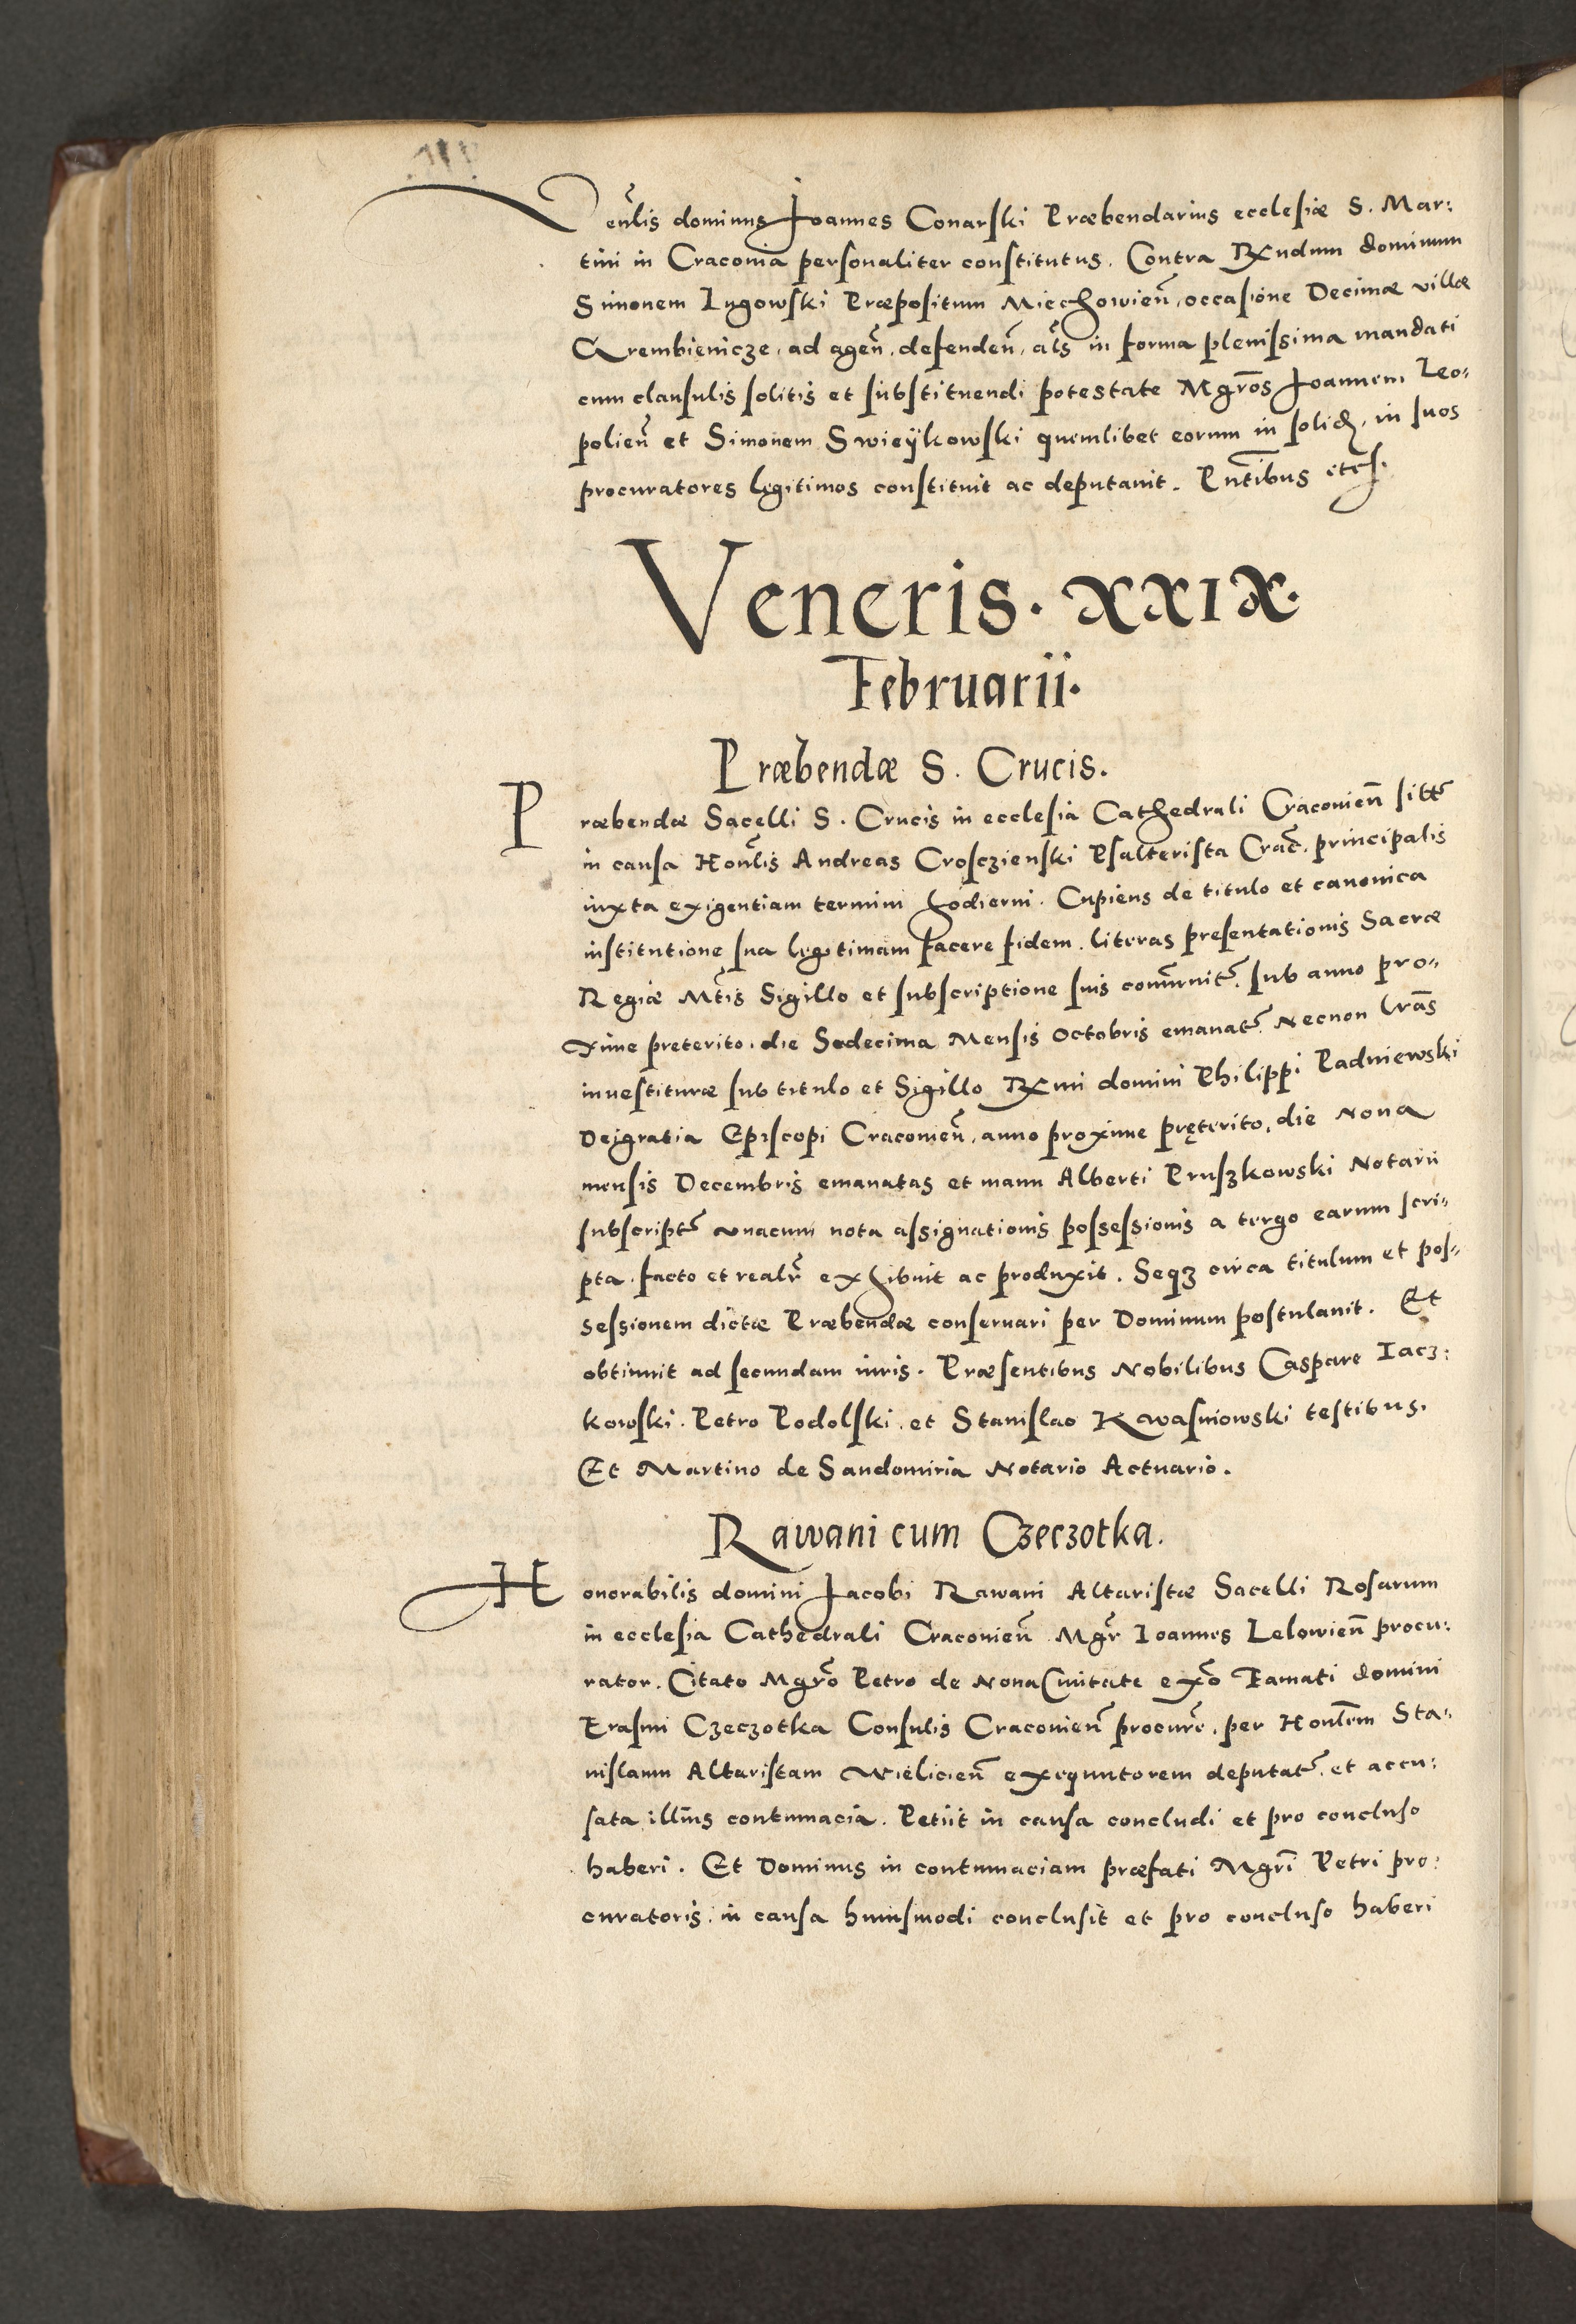 Venlis dominus Joannes Conarski Præbendarius ecclesiæ S. Mar:
tini in Craconia personaliter constitutus. Contra Rxndum dominum
Simonem Iugowski Præpositum Miechowień, occasione Decimæ villæ
Qrembienicze, ad ageń, defendeń, als in forma plenissima mandati
cum clausulis solitis et substituendi potestate Mgros Joannem Leo-
polień et Simonem Swieÿkowski quemlibet eorum in solid, in suos
procuratores legitimos constituit ac deputauit. Pntibus etcs.
Veneris. XXIX.
Februarii.
Præbendæ S. Crucis.
Præbendæ Sacelli S. Crucis in ecclesia Cathedrali Craconień sitt
in causa Honlis Andreas Crosczienski Psalterista Crac. principalis
iuxta exigentiam termini hodierni. Cupiens de titulo et canonica
institutione sua legitimam facere fidem. literas presentationis Sacræ
Regiæ Mtis Sigillo et subscriptione suis communit. sub anno pro-
xime preterito. die Sedecima Mensis Octobris emanat. Necnon lras
inuestituræ sub titulo et Sigillo Rxmi domini Philippi Padniewski
Deigratia Episcopi Craconień, anno proxime pręterito, die Nona
mensis Decembris emanatas et manu Alberti Pruszkowski Notarii
subscript vnacum nota assignationis possessionis a tergo earum scri-
pta. facto et realr exhibuit ac produxit. Seqz circa titulum et pos-
sessionem dictæ Præbendæ conseruari per Dominum postulauit. Et
obtinuit ad secundam iuris. Præsentibus Nobilibus Caspare Iacz:
kowski. Petro Podolski. et Stanislao Kwasniowski testibus.
Et Martino de Sandomiria Notario Actuario.
Rawani cum Czeczotka.
Honorabilis domini Jacobi Rawani Altaristæ Sacelli Rosarum
in ecclesia Cathedrali Craconień Mgr Ioannes Lelowień procu:
rator. Citato Mgro Petro de Noua Ciuitate exo Famati domini
Erasmi Czeczotka Consulis Craconień procure. per Honlem Sta-
nislaum Altaristam Wielicień exequutorem deputat. et accu:
sata illius contumacia. Petiit in causa concludi et pro concluso
haberi. Et Dominus in contumaciam præfati Mgri Petri pro:
curatoris. in causa huiusmodi conclusit et pro concluso haberi